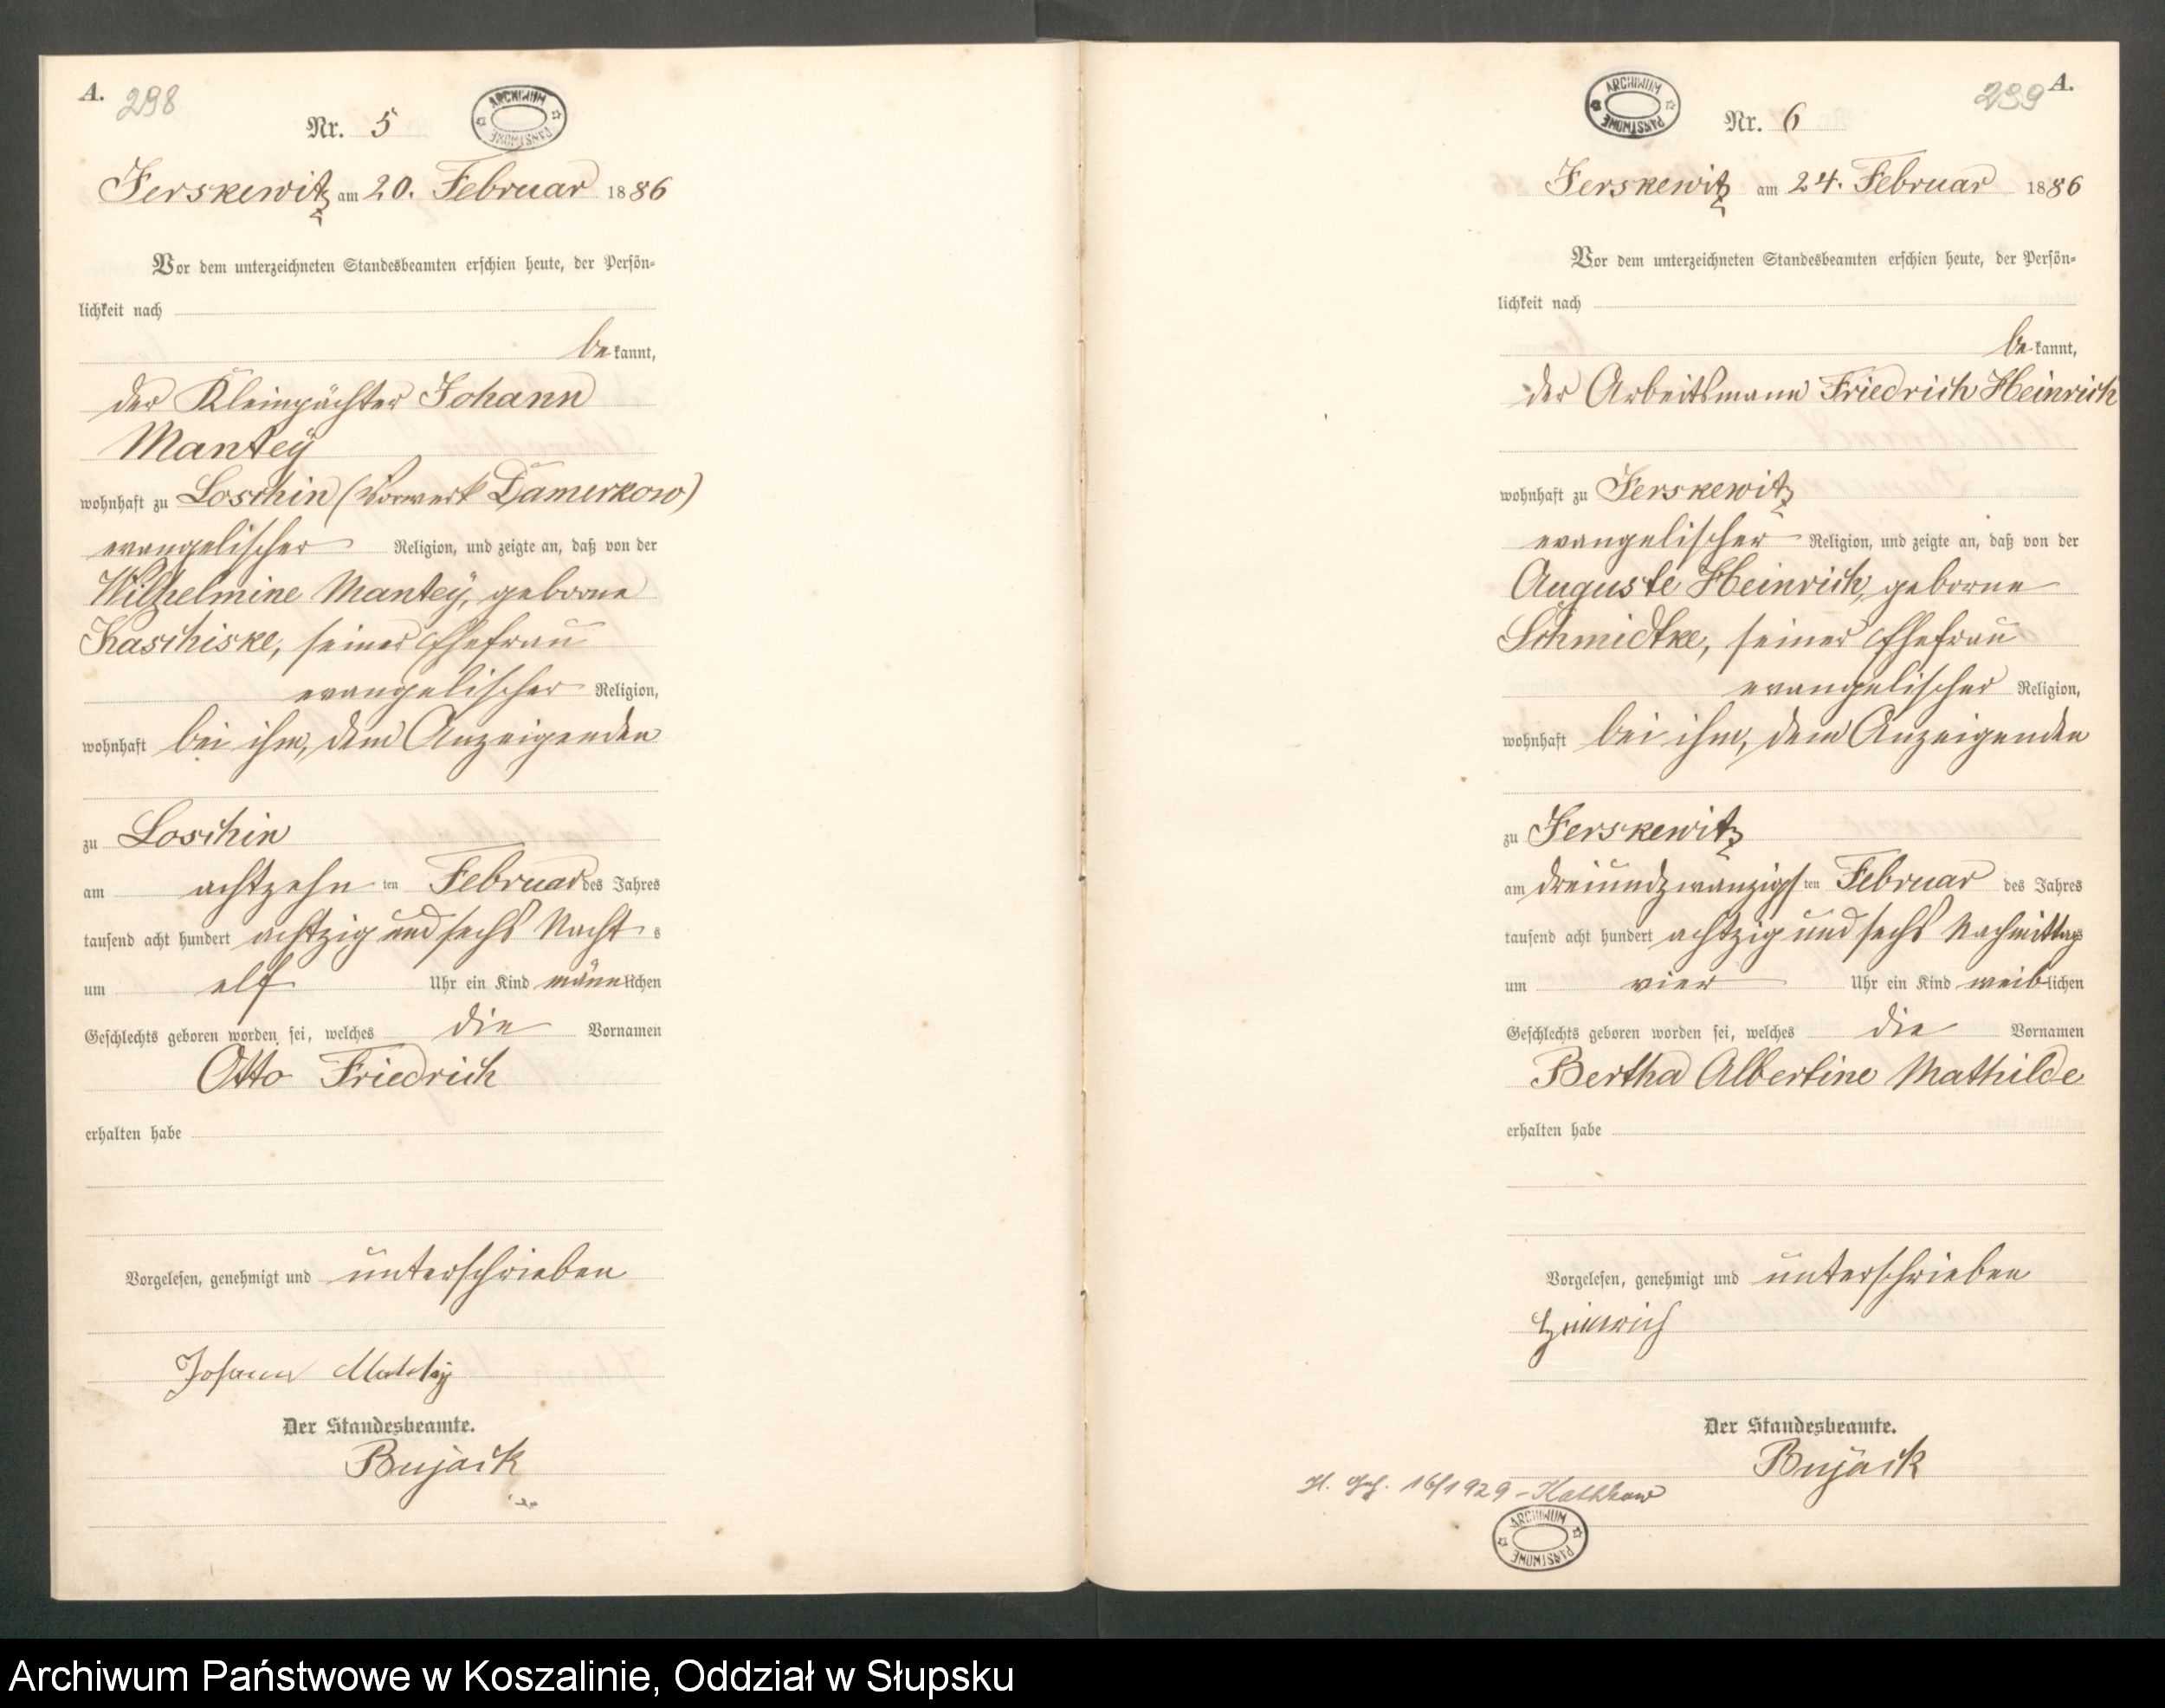 A.
298
ARCHIWUM PAŃSTWOWE
Nr. 5
Jerskewitz am 20. Februar 1886
Vor dem unterzeichneten Standesbeamten erschien heute, der Persön-
lichkeit nach
bekannt,
der Kleinpächter Johann
Manteÿ
wohnhaft zu Loschin (Vorwerk Damerkow)
evangelischer Religion, und zeigte an, daß von der
Wilhelmine Manteÿ, geborne
Kaschiske, seiner Ehefrau
evangelischer Religion,
wohnhaft bei ihm, dem Anzeigenden
zu Loschin
am achtzehn ten Februar des Jahres
tausend acht hundert achtzig und sechs Nachts
um elf Uhr ein Kind männlichen
Geschlechts geboren worden sei, welches die Vornamen
Otto Friedrich
erhalten habe
Vorgelesen, genehmigt und unterschrieben
Johann Manteÿ
Der Standesbeamte.
Bujack
A.
299
ARCHIWUM PAŃSTWOWE
Nr. 6
Jerskewitz am 24. Februar 1886
Vor dem unterzeichneten Standesbeamten erschien heute, der Persön-
lichkeit nach
bekannt,
der Arbeitsmann Friedrich Heinrich
wohnhaft zu Jerskewitz
evangelischer Religion, und zeigte an, daß von der
Auguste Heinrich, geborne
Schmidtke, seiner Ehefrau
evangelischer Religion,
wohnhaft bei ihm, dem Anzeigenden
zu Jerskewitz
am dreiundzwanzigsten Februar des Jahres
tausend acht hundert achtzig und sechs Nachmittags
um vier Uhr ein Kind weiblichen
Geschlechts geboren worden sei, welches die Vornamen
Bertha Albertine Mathilde
erhalten habe
Vorgelesen, genehmigt und unterschrieben
Heinrich
Der Standesbeamte.
Bujack
16/1929 - Kathkow
ARCHIWUM PAŃSTWOWE
Archiwum Państwowe w Koszalinie, Oddział w Słupsku